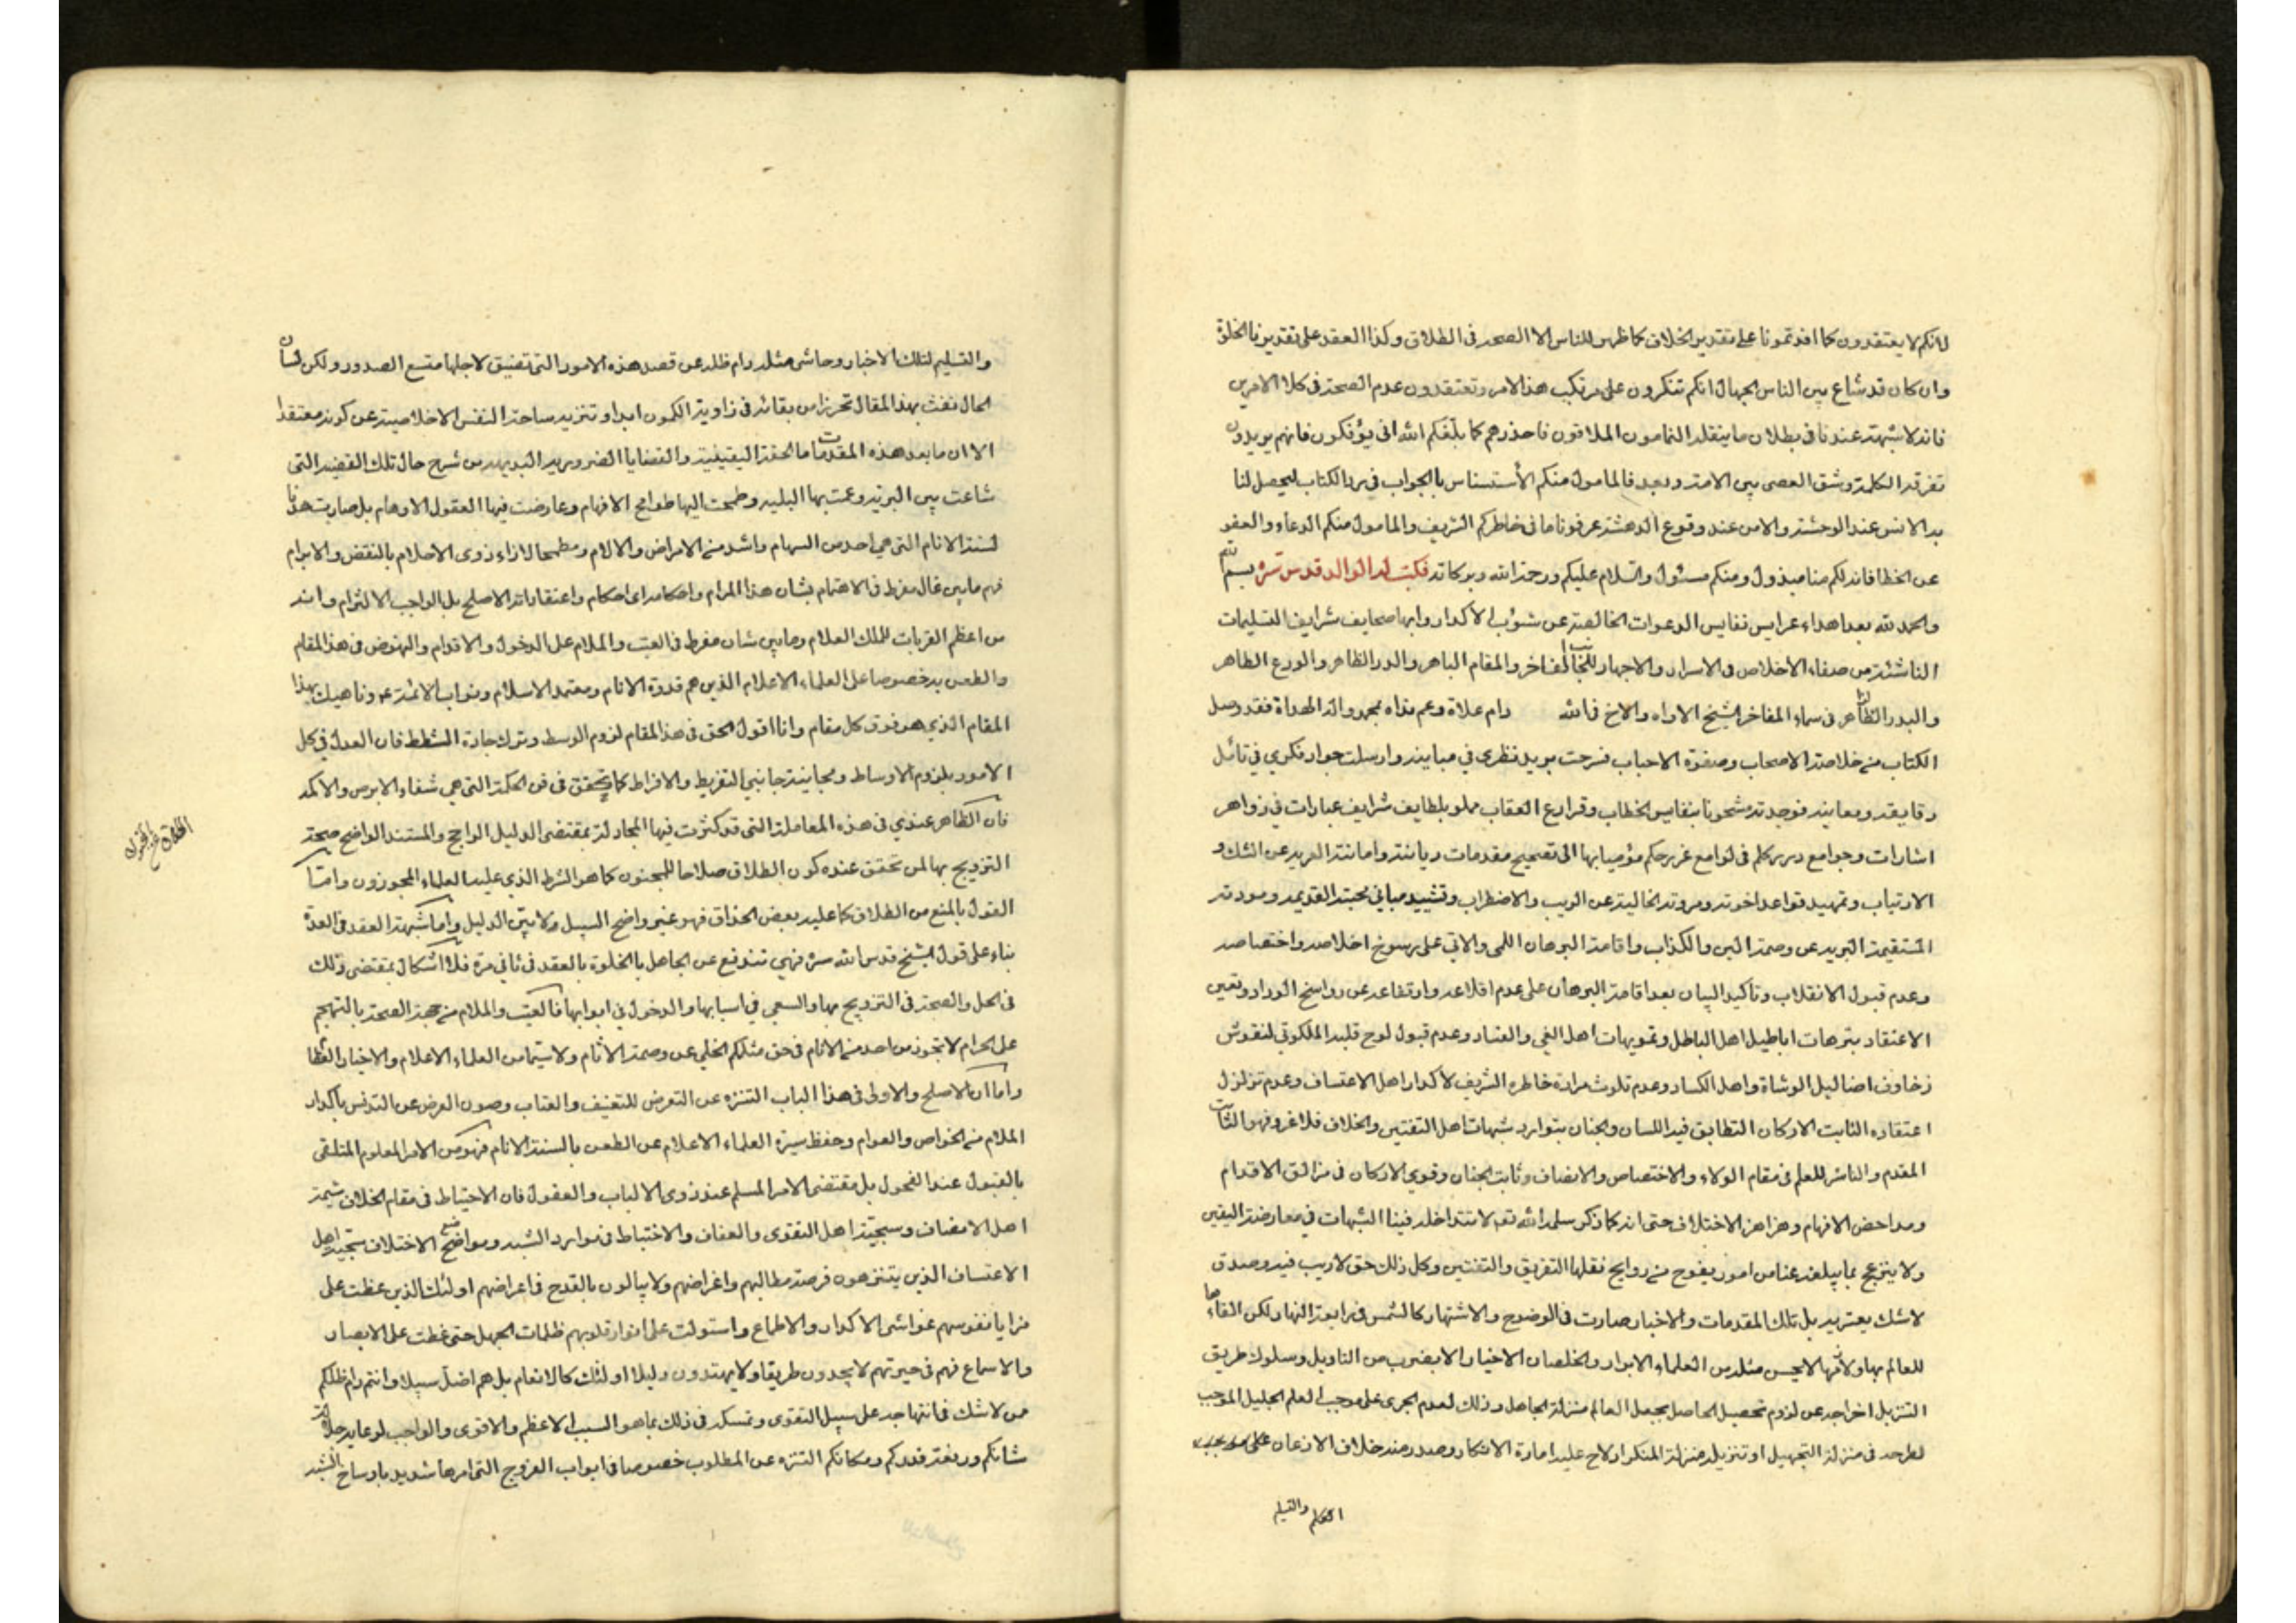 لانكم لا يعتقدون كما افدتمونا على تقدير الخلاف كما ظهر للناس الا الصحة في الطلاق وكذا العقد على تقدير نا الخلوة
وان كان قد شاع بين الناس الجهال انكم تنكرون على مرتكب هذا الامر وتعتقدون عدم الصحة في كلا الامرين
فانه لا شبهة عندنا في بطلان ما ينقله النمامون الملاقون فاحذرهم كما بلغكم الله انى يؤفكون فانهم يريدون
تفرقة الكلمة وشق العصى بين الامة وبعد فالمامول منكم الأستيناس بالجواب في رد الكتاب ليحصل لنا
به الانس عند الوحشة والامن عند وقوع الدهشة عرفونا ما في خاطركم الشريف والمامول منكم الدعاء والعفو
عن الخطا فانه لكم منا مبذول ومنكم مسئول والسلام عليكم ورحمة الله وبركاته فكتب له الوالد قدس سره بسم الله
والحمد لله بعد اهداء عرايس نفايس الدعوات الخالصة عن شوب الأكدار وابها صحايف شرايف التسليمات
الناشئة من صفاء الاخلاص في الاسرار والاجهار للجناب الفاخر والمقام الباهر والدر الظاهر والورع الطاهر
والبدر الظاهر في سماء المفاخر الشيخ الاواه والاخ في الله دام علاه وعم نداه بمحمد واله الهداة فقد وصل
الكتاب من خلاصة الاصحاب وصفوة الاحباب فسرحت بريد نظري في مباينه وارسلت جواد فكري في تائل
دقايقه ومعاينه فوجدته مشحونا بنفايس الخطاب وقرارع العقاب مملو بلطايف شرايف عبارات في زواهر
اشارات وجوامع درر كلم في لوامع غرر حكم مؤميا بها الى تصحيح مقدمات ديانته وامانته العرية عن الشك و
الارتياب وتمهيد قواعد اخوته ومروته الخالية عن الريب والاضطراب وتشييد مباني محبته القديمة ومودته
المستقيمة البرية عن وصمة المين والكذاب واقامة البرهان اللمى والاني على رسوخ اخلاصه واختصاصه
وعدم قبول الانقلاب وتاكيد البيان بعد اقامة البرهان على عدم اقلاعه وارتفاعه عن رواسخ الوداد وتعين
الاعتقاد بترهات اباطيل اهل الباطل وتمويهات اهل الغي والعناد وعدم قبول لوح قلبه الملكوتي لنقوش
زخاوف اضاليل الوشاة واهل الكساد وعدم تلوث مراة خاطره الشريف لأكدار اهل الاعتساف وعدم تزلزل
اعتقاده الثابت الاركان التطابق فيه اللسان والجنان بتوارد شبهات اهل التفتين والخلاف فلا غرو فهو الثابت
المقدم والناشر للعلم في مقام الولاء والاختصاص والانصاف وثابت الجنان وقوي الاركان في مزالق الاقدام
ومداحض الافهام وهزاهز الاختلاف حتى انه كما ذكر سلمه الله تعه لا تتداخله فينا الشبهات في معارضة اليقين
ولا ينزعج بما يبلغه عنا من امور يفوح من روايح نقلها التفريق والتفتين وكل ذلك حق لا ريب فيه وصدق
لا شك يعتريه بل تلك المقدمات والاخبار صارت في الوضوح والاشتهار كالشمس في رابعة النهار ولكن القاءها
للعالم بها ولازمها لا يحسن مثله من العلماء الابرار والخلصان الاخيار الا بضرب من التاويل وسلوك طريق
التنزيل اخراجه عن لزوم تحصيل الحاصل بجعل العالم منزلة الجاهل وذلك لعدم الجرى على موجب العلم الجليل الموجب
لطرحه في منزلة التجهيل او تنزيله منزلة المنكر اولاح عليه امارة الانكار وصدر منه خلاف الاذعان على موجب
العلم والتسليم
والتسليم لتلك الاخبار وحاشى مثله دام ظله عن قصد هذه الامور التى تضيق لاجلها متسع الصدور ولكن لسان
الحال نفث بهذا المقال تحرزا من بقائه في زاوية الكمون ابدا وتنزيه ساحة النفس الاخلاصية عن كونه معتقدا
الا ان ما بعد هذه المقدمات الحقة اليقينية والقضايا الضرورية البديهية من شرح حال تلك القضية التى
شاعت بين البرية وعمت بها البلية وطمحت اليها طوامح الافهام وعارضت فيها العقول الاوهام بل صارت هدفا
لسنة الانام التى هي احد من السهام واشد من الامراض والالام ومطمحا لازاء ذوى الاحلام بالنقض والابرام
فهم ما بين غال مفرط في الاهتمام بشان هذا المرام واحكامه اى احكام واعتقاد انه الاصلح بل الواجب الالتزام وانه
من اعظم القربات للملك العلام وما بين شان مفرط في العتب والملام على الدخول والاقدام والنهوض في هذا المقام
والطعن به خصوصا على العلماء الاعلام الذين هم قدوة الانام ومعتمد الاسلام ونواب الائمة ع وناهيك بهذا
المقام الذي هو فوق كل مقام وانا اقول الحق في هذا المقام لزوم الوسط وترك جادة الشطط فان العدل في كل
الامور بلزوم الاوساط ومجانبة جانبي التفريط والافراط كما تحقق في فن الحكمة التى هي شفاء الابرص والاكمه
فان الظاهر عندي في هذه المعاملة التى قد كثرت فيها المجادلة بمقتضى الدليل الواجح والمستند الواضح صحة
التزويج بها لمن تحقق عنده كون الطلاق صلاحا للمجنون كما هو الشرط الذي عليه العلماء المجوزون واما
القول بالمنع من الطلاق كما عليه بعض الحذاق فهو غير واضح السبيل ولا بيّن الدليل واما شبهة العقد في العدة
بناء على قول الشيخ قدس الله سره فهي تندفع عن الجاهل بالخلوة بالعقد في ثاني مرة فلا اشكال بمقتضى ذلك
في الحل والصحة في التزويج بها والسعي في اسبابها والدخول في ابوابها فالعتب والملام من جهة الصحة بالتهجم
على الحرام لا تجوز من احد من الانام في حق مثلكم الخلي عن وصمة الأثام ولا سيما من العلماء الاعلام والاخيار العظام
واما ان الاصلح والاولى في هذا الباب التنزه عن التعرض للتعنيف والعتاب وصون العرض عن التدنس باكدار
الملام من الخواص والعوام وحفظ سيرة العلماء الاعلام عن الطعن بالسنة الانام فهو من الامر المعلوم المتلقى
بالقبول عند الفحول بل مقتضى الامر المسلم عند ذوى الالباب والعقول فان الاحتياط في مقام الخلاف شيمة
اهل الانصاف وسجيّة اهل التقوى والعفاف والاختباط في موارد الشبه ومواضع الاختلاف سجية اهل
الاعتساف الذين ينتهزون فرصة مطالبهم واغراضهم ولا يبالون بالقدح في اعراضهم اولئك الذين غطت على
مرايا نفوسهم غواشى الاكدار والاطماع واستولت على انوار قلوبهم ظلمات الجهل حتى غطت على الابصار
والاسماع فهم في حيرتهم لا يجدون طريقا ولا يهتدون دليلا اولئك كالانعام بل هم اضل سبيلا وانتم دام ظلكم
من لا شك في انتهاجه على سبيل التقوى وتمسكه في ذلك بما هو السبب الاعظم والاقوى والواجب لرعاية جلالة
شانكم ورفعة قدركم ومكانكم التنزه عن المطلوب خصوصا في ابواب الفروج التى امرها شديد باوساخ الشبه